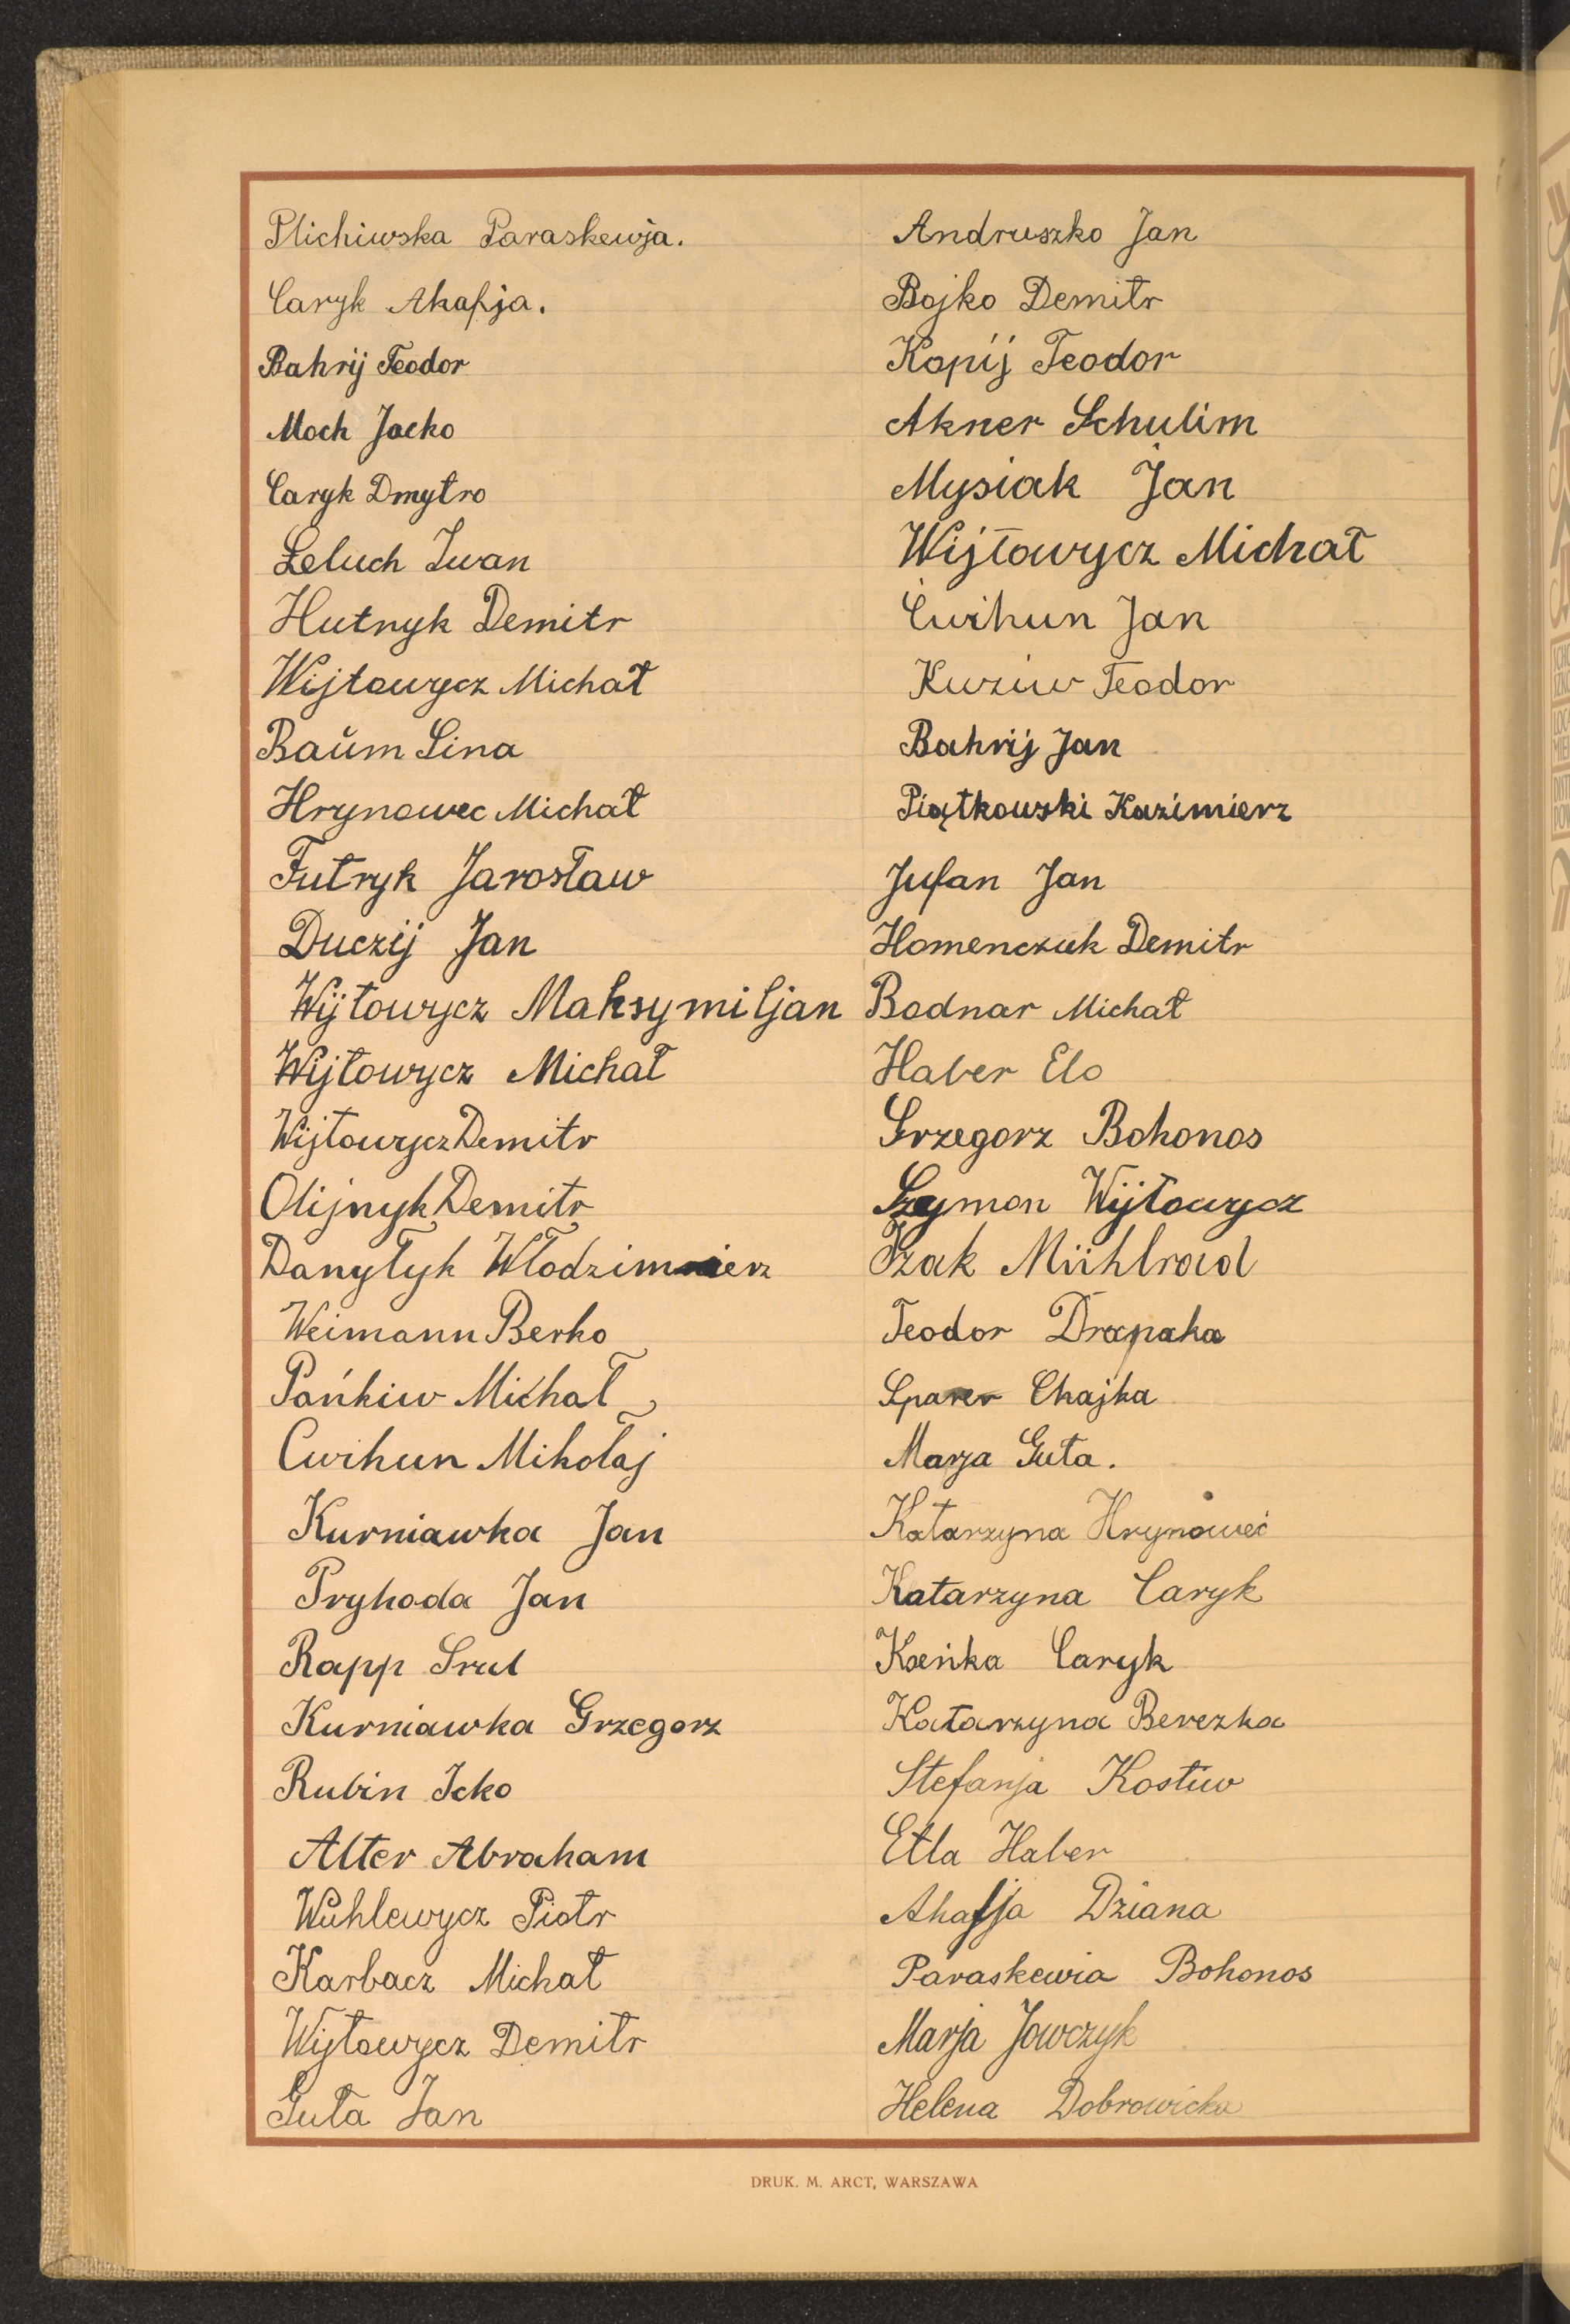 Plichiwska Paraskewja.
Caryk Akafja.
Bahrij Teodor
Moch Jacko
Caryk Dmytro
Leluch Iwan
Hutnyk Demitr
Wijtowycz Michał
Baŭm Lina
Hrynowec Michał
Futryk Jarosław
Duczij Jan
Wijtowycz Maksymiljan
Wijtowycz Michał
Wijtowycz Demitr
Olijnyk Demitr
Danyłyk Włodzimierz
Weimann Berko
Pańkiw Michał
Cwihun Mikołaj
Kurniawka Jan
Pryhoda Jan
Rapp Srul
Kurniawka Grzegorz
Rubin Icko
Alter Abraham
Wuhlewycz Piotr
Karbacz Michał
Wijtowycz Demitr
Guta Jan
Andruszko Jan
Bojko Demitr
Kopij Teodor
Akner Schulim
Mysiak Jan
Wijtowycz Michał
Ćwihun Jan
Kuziw Teodor
Bahrij Jan
Piątkowski Kazimierz
Jufan Jan
Homenczuk Demitr
Bodnar Michał
Haber Elo
Grzegorz Bohonos
Szymon Wijtowycz
Izak Mühlrad
Teodor Drapaka
Sparer Chajka
Marja Guta.
Katarzyna Hrynoweć
Katarzyna Caryk
Kseńka Caryk
Katarzyna Berezka
Stefanja Kostiw
Etla Haber
Ahafja Dziana
Paraskewia Bohonos
Marja Jowczyk
Helena Dobrowicka
DRUK. M. ARCT, WARSZAWA